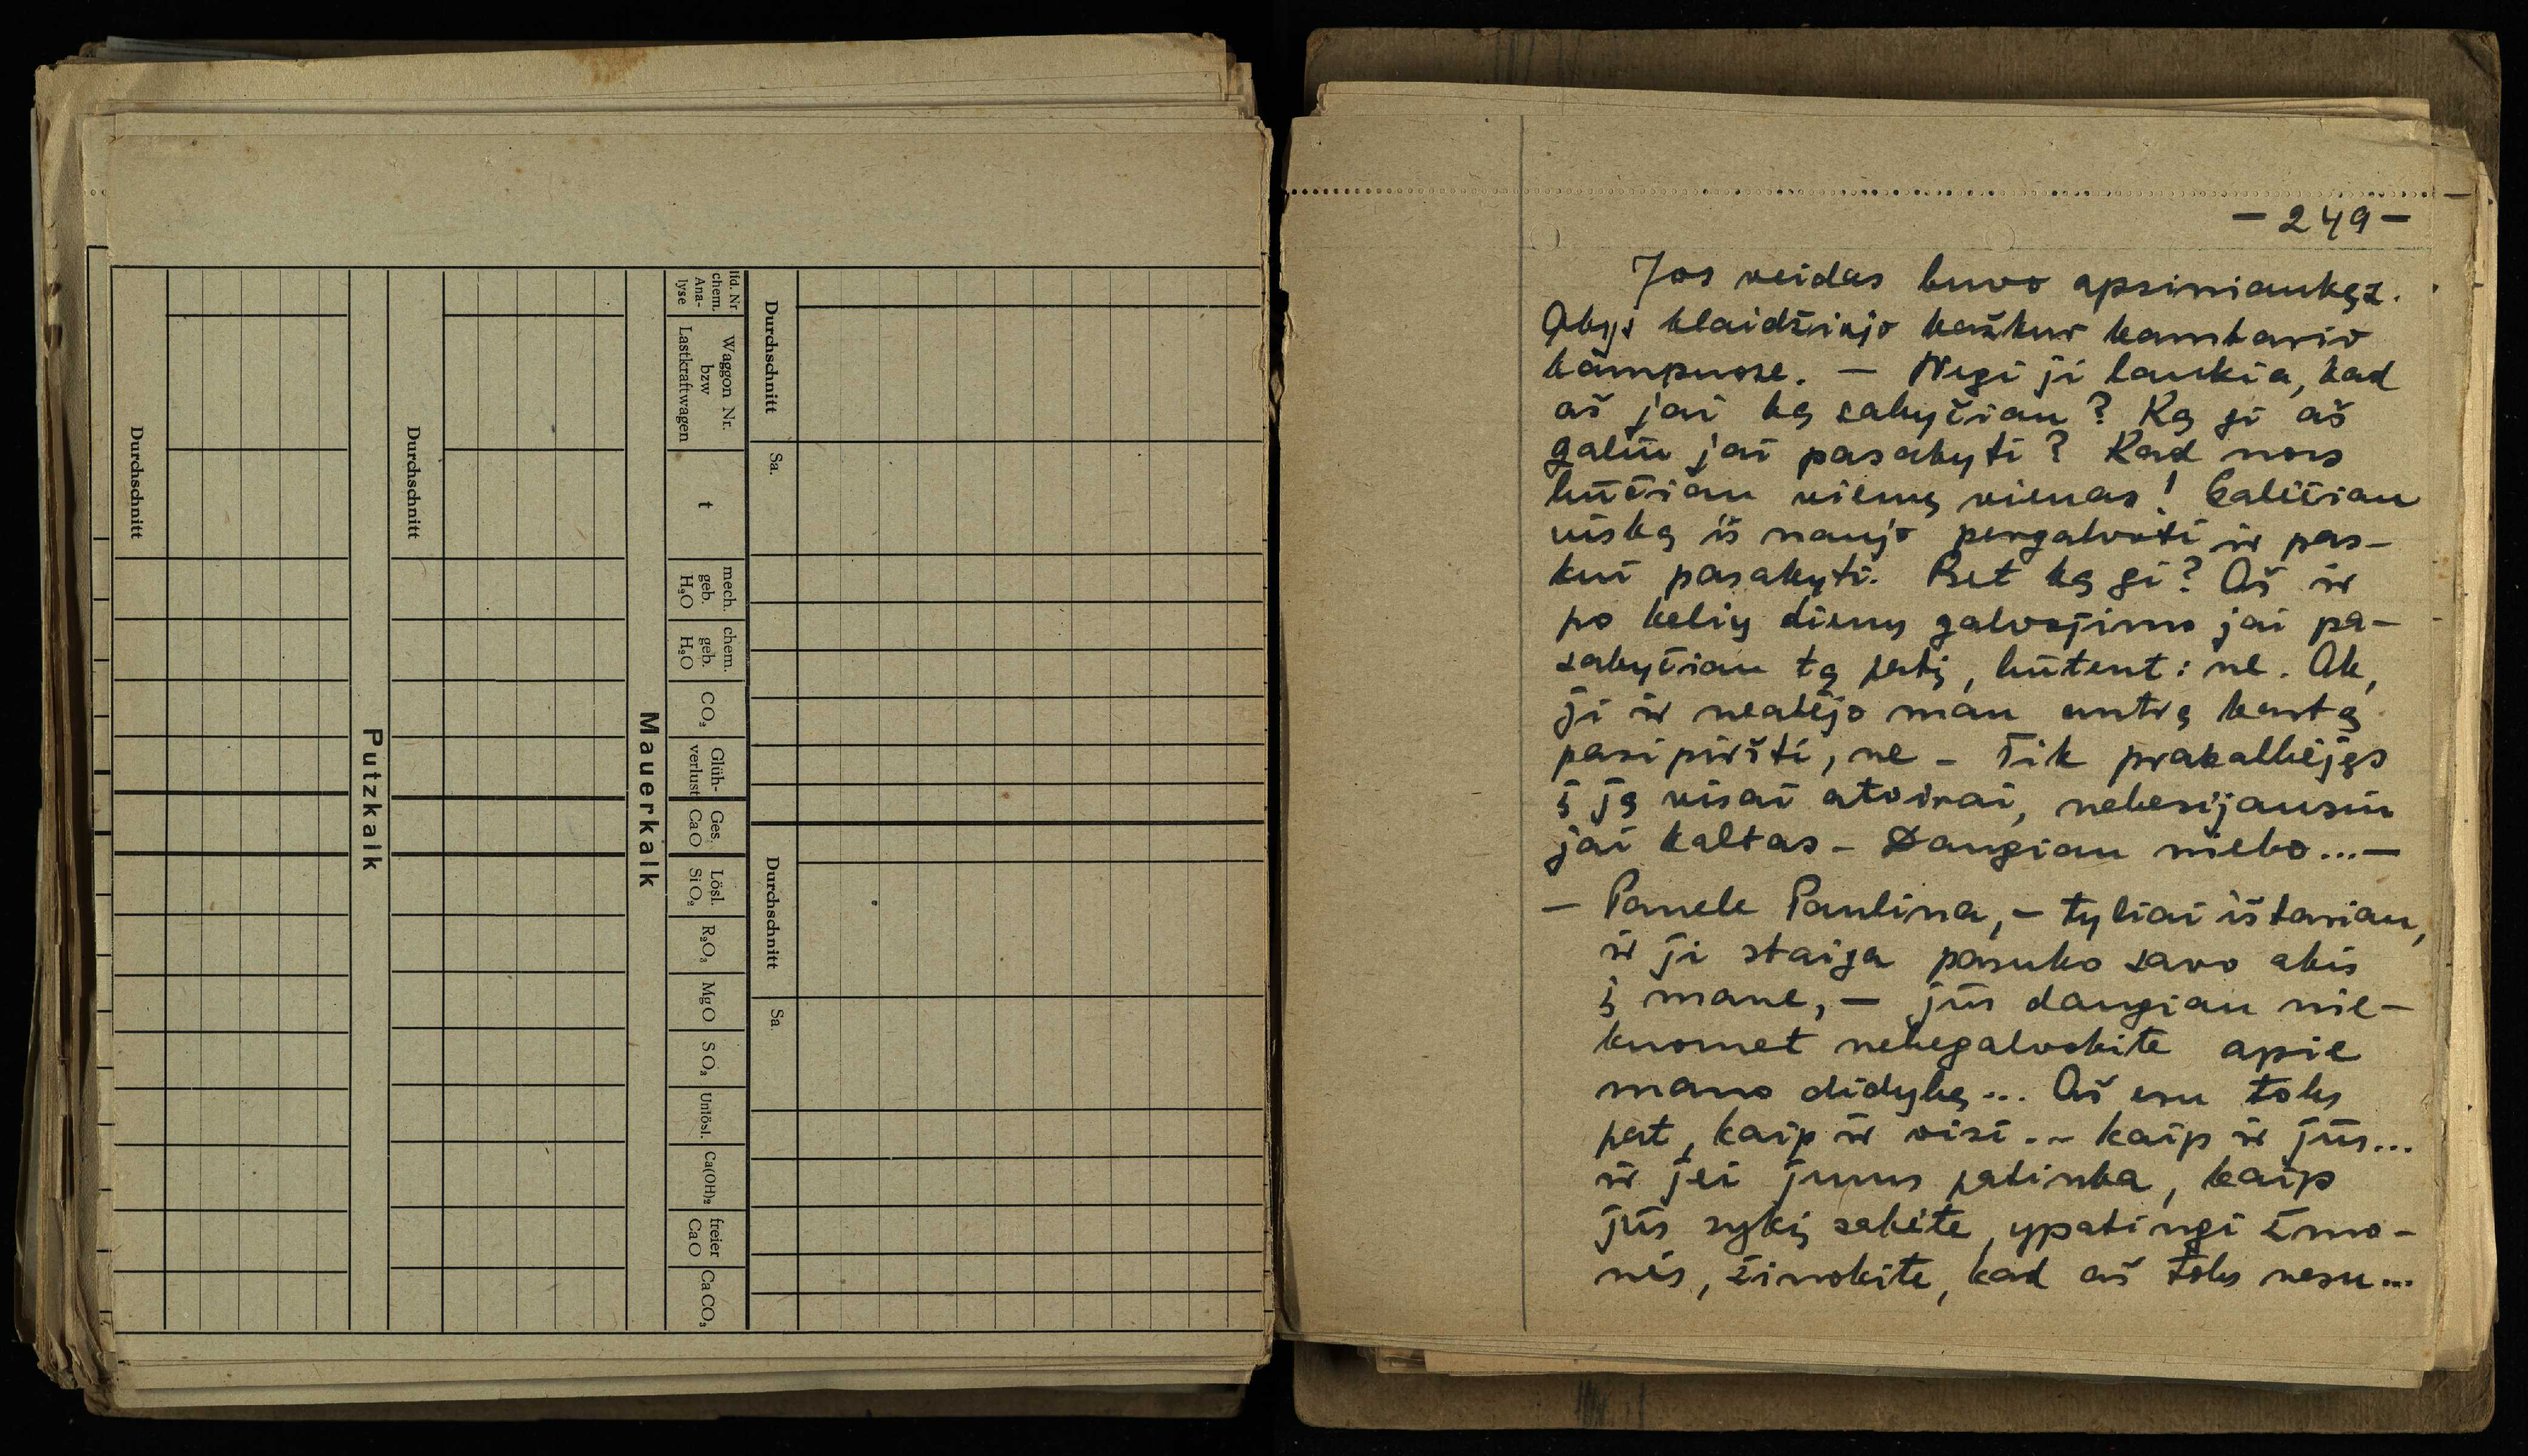 lfd. Nr
chem.
Ana-
lyse
Waggon Nr.
bzw
Lastkraftwagen
t
mech.
geb.
H₂O
chem.
geb.
H₂O
CO₂
Glüh-
verlust
Ges.
CaO
Lösl.
SiO₂
R₂O₃
MgO
SO₃
Unlösl.
Ca(OH)₂
freier
CaO
CaCO₃
Durchschnitt
Sa.
Durchschnitt
Sa.
Mauerkalk
Durchschnitt
Putzkalk
Durchschnitt
— 249 —
Jos veidas buvo apsiniaukęs.
Akys klaidžiojo kažkur kambario
kampuose. — Negi ji laukia, kad
aš jai ką sakyčiau? Ką gi aš
galiu jai pasakyti? Kad nors
būčiau vienų vienas! Galėčiau
viską iš naujo pergalvoti ir pas-
kui pasakyti. Bet ką gi? Aš ir
po kelių dienų galvojimo jai pa-
sakyčiau tą patį, būtent: ne. Ak,
ji ir neatėjo man antrą kartą
pasipiršti, ne – Tik prakalbėjęs
į ją visai atvirai, nebesijausiu
jai kaltas – Daugiau nieko... —
— Panele Paulina, – tyliai ištariau,
ir ji staiga pasuko savo akis
į mane, — jūs daugiau nie-
kuomet nebegalvokite apie
mano didybę... Aš esu toks
pat, kaip ir visi... kaip ir jūs...
ir jei jums patinka, kaip
jūs sykį sakėte, ypatingi žmo-
nės, žinokite, kad aš toks nesu...